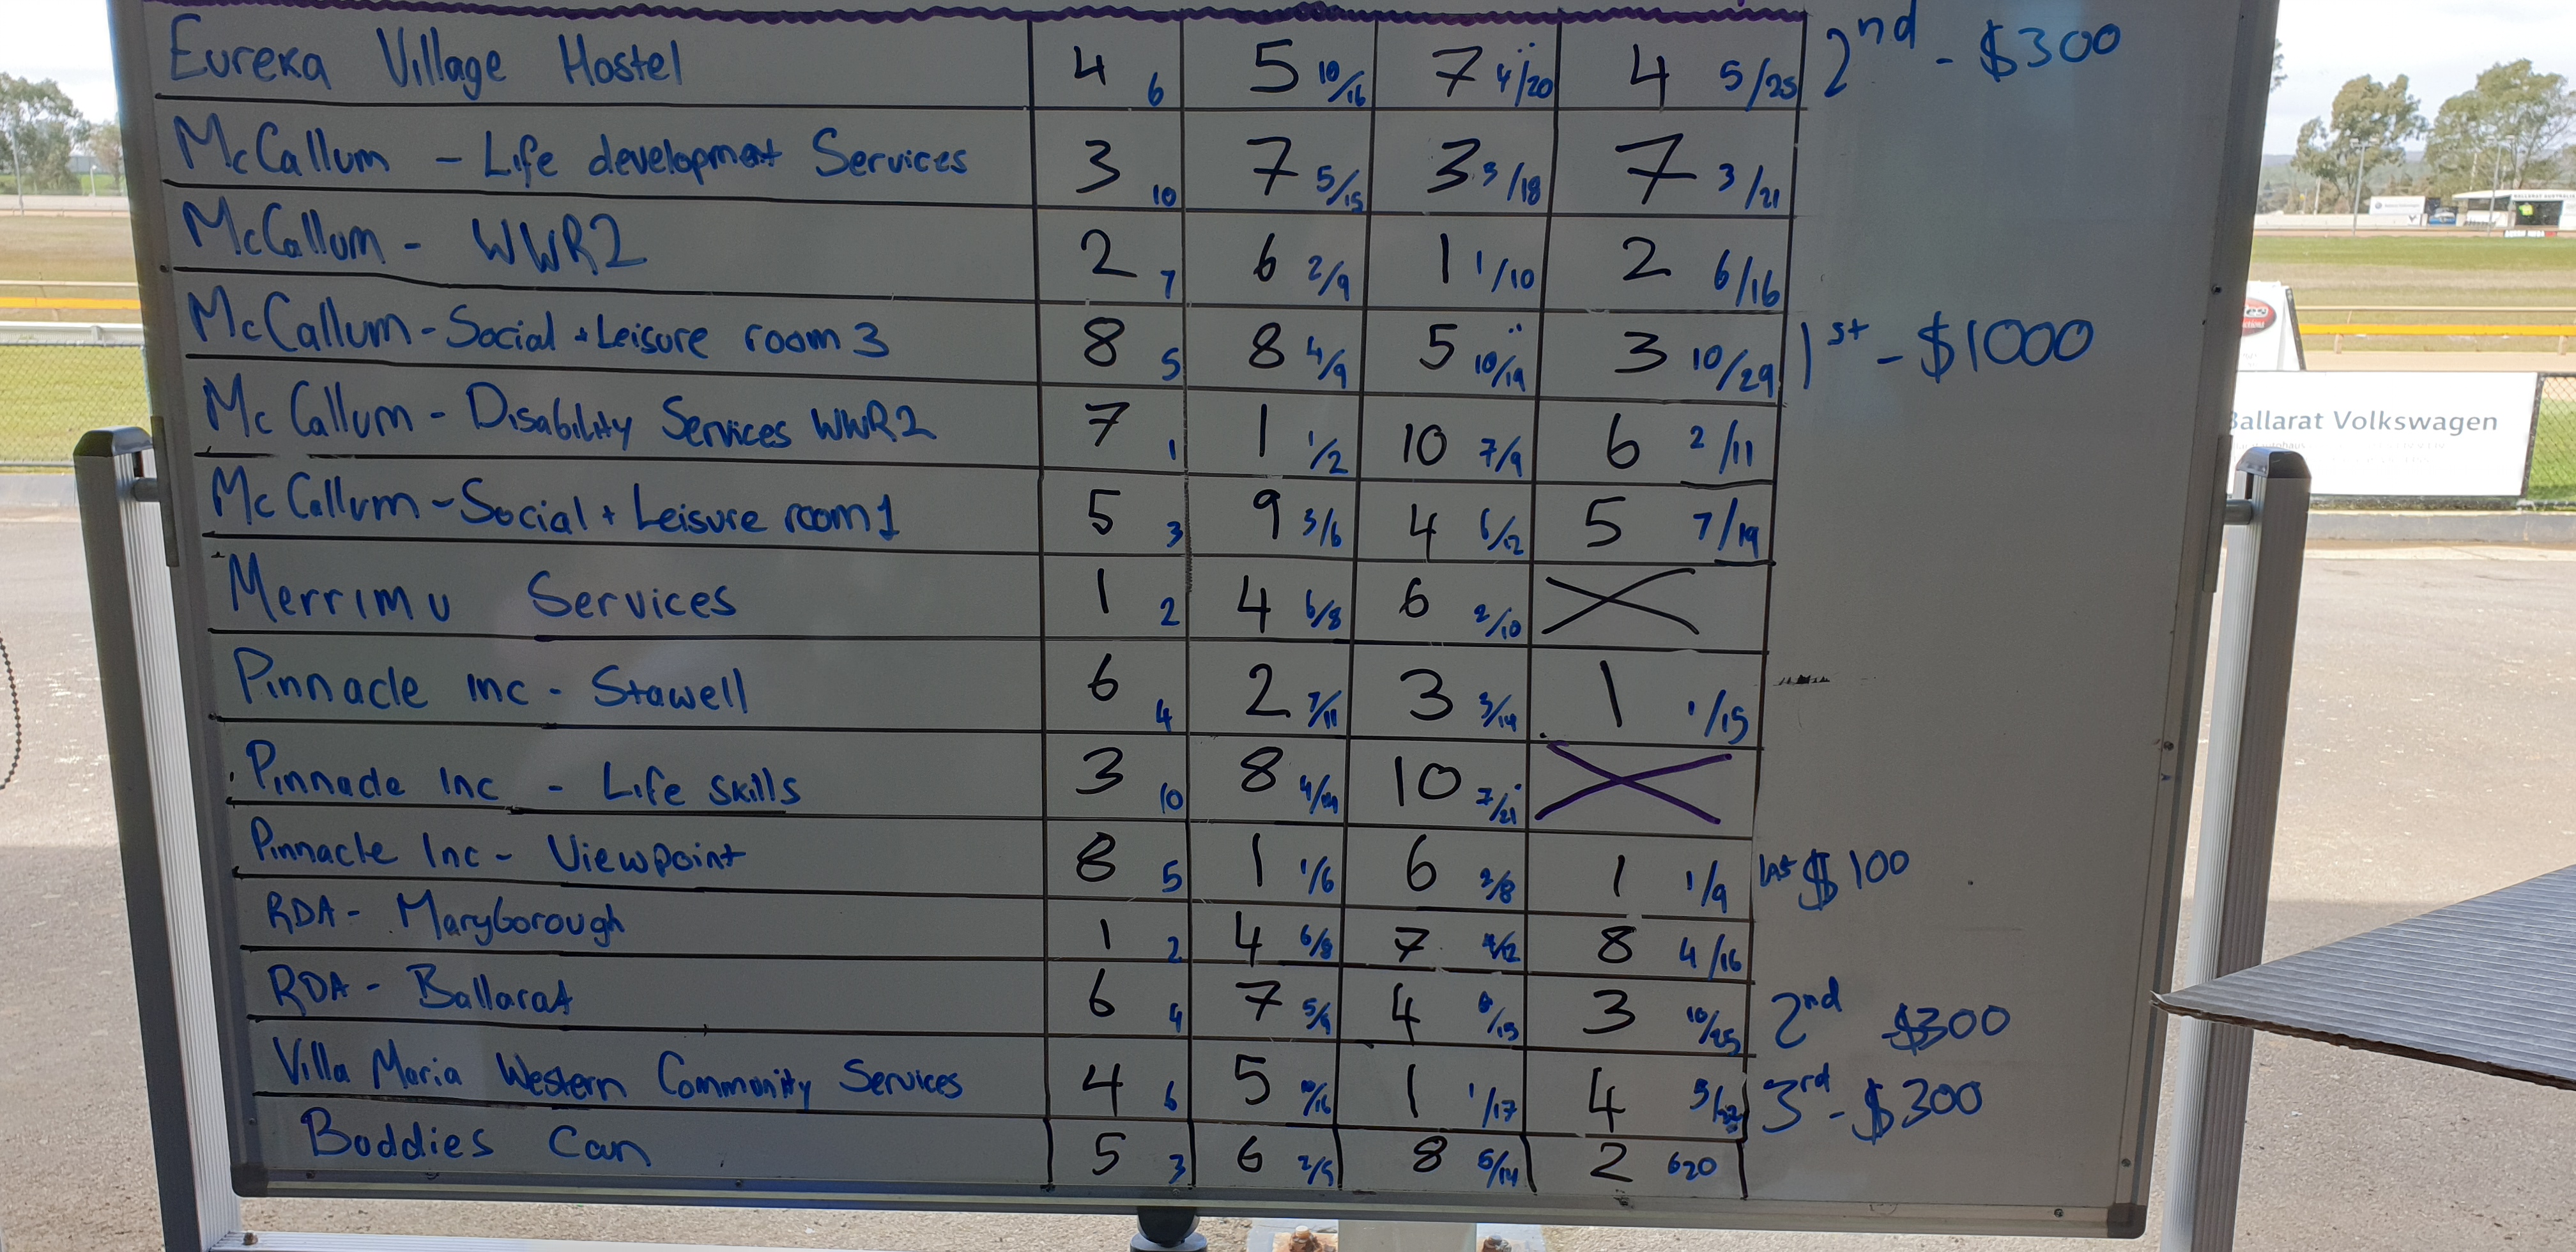 Eureka Village Hostel 4 6 5 10/16 7 4/20 4 5/25 2nd - $300
McCallum - Life development Services 3 10 7 5/15 3 3/18 7 3/21
McCallum - WWR2 2 7 6 2/9 1 1/10 2 6/16
McCallum - Social + Leisure room 3 8 5 8 4/9 5 10/19 3 10/29 1st - $1000
McCallum - Disability Services WWR2 7 1 1 1/2 10 7/9 6 2/11
McCallum - Social + Leisure room 1 5 3 9 3/6 4 6/12 5 7/19
Merrimu Services 1 2 4 6/8 6 2/10
Pinnacle Inc - Stawell 6 4 2 7/11 3 3/14 1 1/15
Pinnacle Inc - Life skills 3 10 8 4/14 10 7/21
Pinnacle Inc - Viewpoint 8 5 1 1/6 6 2/8 1 1/9 last $100
RDA - Maryborough 1 2 4 6/8 7 4/12 8 4/16
RDA - Ballarat 6 4 7 5/9 4 6/15 3 10/25 2nd $300
Villa Maria Western Community Services 4 6 5 10/16 1 1/17 4 5/22 3rd - $300
Buddies Can 5 3 6 2/5 8 5/14 2 6 20
Ballarat Volkswagen